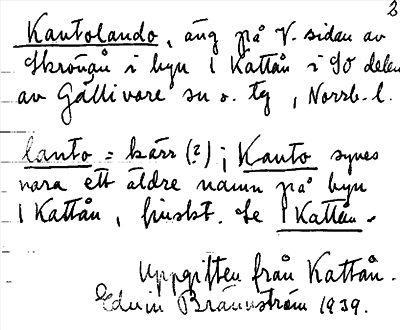 2
Kantolando, äng på V. sidan av
Skrövån i byn 1 Kattån i SO delen
av Gällivare sn o. tg, Norrb. l.
lanto = kärr (?); Kanto synes
vara ett äldre namn på byn
1 Kattån, finskt. Se 1 Kattån.
Uppgiften från Kattån.
Edvin Brännström 1939.